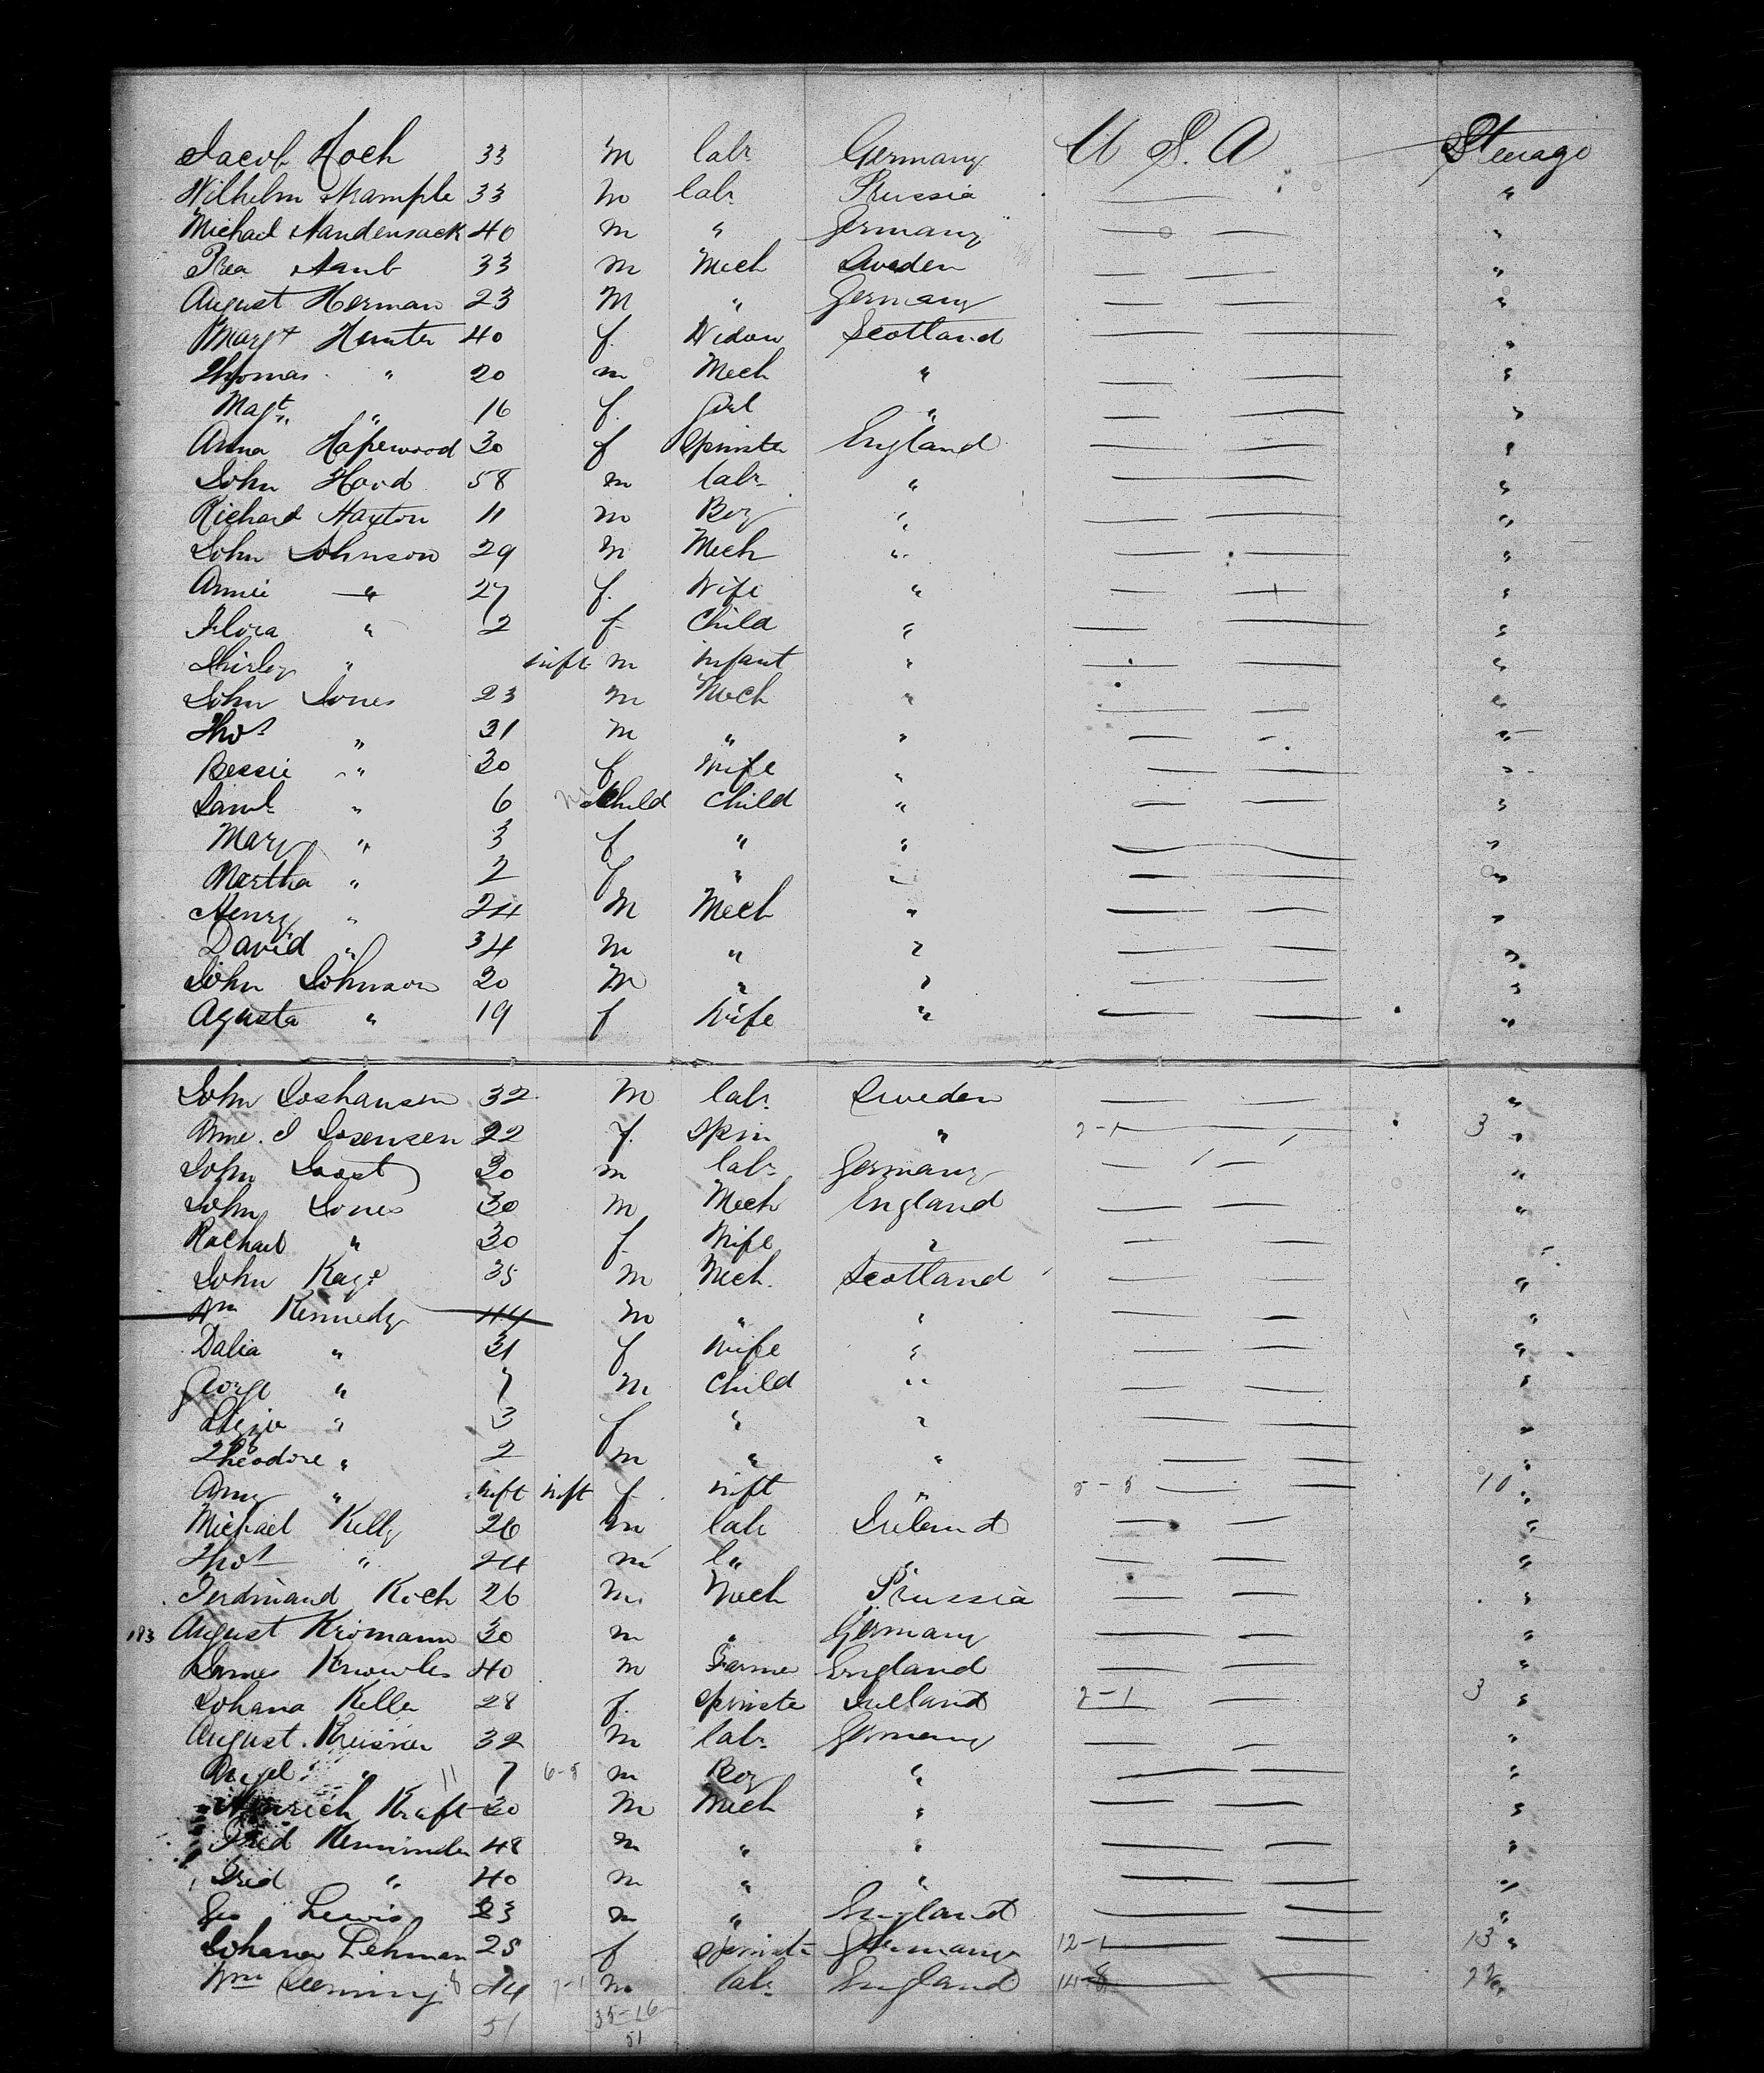 Jacob Hoch 33 m labr Germany U S. A Steerage
Wilhelm 33 m labr Prussia "
Michael Handensack 40 m " Germany "
33 m Mech Sweden "
August Herman 23 M " Germany "
Margt Hunter 40 f. Widow Scotland "
Thomas " 20 m Mech " "
Magt " 16 f. Girl " "
Anna Hapewood 30 f Spinster England "
John Hood 58 m labr " "
Richard Haxton 11 m Boy " "
John Johnson 29 m Mech " "
Annie " 27 f. Wife " "
Flora " 2 f Child " "
Shirley " inft m infant " "
John Jones 23 m Mech " "
Thos " 31 m " " "
Bessie " 30 f Wife " "
Saml " 6 child Child " "
Mary " 3 f " " "
Martha " 2 f " " "
Henry " 24 m Mech " "
David " 34 m " " "
John Johnson 20 m " " "
Agusta " 19 f Wife " "
John Joshansen 32 m labr Sweden "
22 f. Spin " 2-1 3 "
John Joost 30 m labr Germany "
John Jones 30 m Mech England "
Rachael " 30 f Wife " "
John Kaye 35 m Mech. Scotland "
Wm Kennedy 44 m " " "
Dalia " 31 f Wife " "
George " 7 m Child " "
Lizzie " 3 f " " "
Theodore " 2 m " " "
Amy " inft inft f inft " 5-5 10 "
Michael Kelly 26 m labr Ireland "
Thos " 24 m l" " "
Ferdinand Koch 26 m. Mech Prussia "
183 August Kromann 30 m " Germany "
James Knowles 40 m Farmer England "
Johana Keller 28 f. Spinster Ireland 2-1 3 "
August Kreisner 32 m labr Germany "
" 11 7 6-5 m Boy " "
Hinrich Kraft 30 m Mech " "
Fred 48 m " " "
Fred " 40 m " " "
Geo Lewis 23 m " England "
Johana Lehman 25 f Spinster Germany 12-1 13 "
Wm Leeming 8 44 7-1 m labr England 14-8 22 "
51 35-16
51